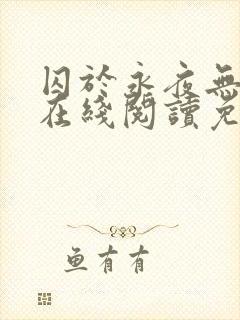 囚於永夜無
在綫閱讀免
鱼有有